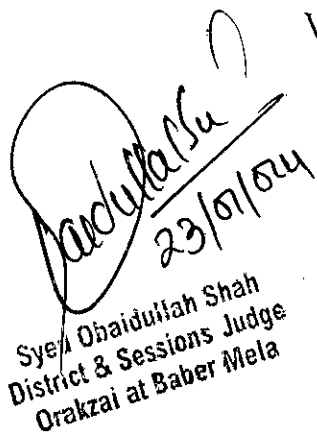 23/01/024
Syed Obaidullah Shah
District & Sessions Judge
Orakzai at Baber Mela